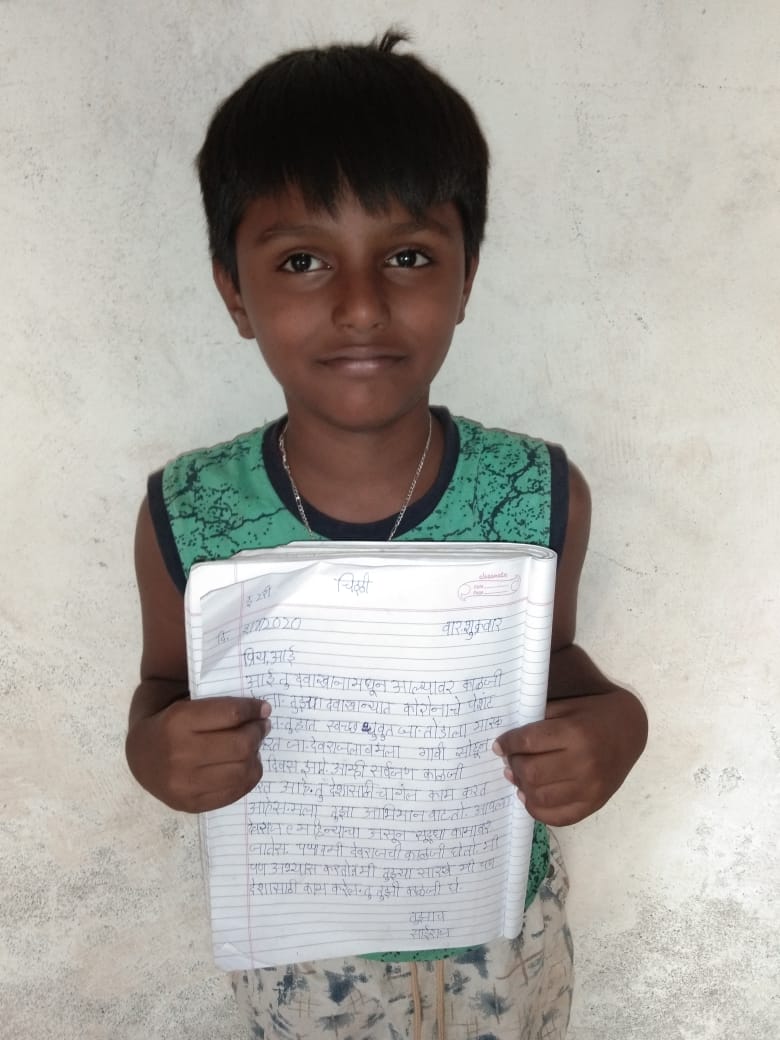 चिठ्ठी
classmate
Date
Page
इ 2री
दि. 3/7/2020 वार शुक्रवार
प्रिय, आई
आई तु दवाखानामधून आल्यावर काळजी
तुझ्या दवाखान्यात कोरोनाचे पेशंट
हात स्वच्छ धुवुत जा. तोंडाला मास्क
जा. देवराजला व मला गावी सोडून
दिवस झाले. आम्ही सर्वजण काळजी
आहे. तु देशासाठी चांगल काम करत
आहेस. मला तुझा अभिमान वाटतो. आपला
देवराज ८ महिन्याचा असून सुद्धा कामावर
जातेस. पप्पा मी देवराजची काळजी घेतो. मी
पण अभ्यास करतो. मी तुझ्या सारखे मी पण
देशासाठी काम करेल. तु तुझी काळजी घे.
तुझाच
साईराज